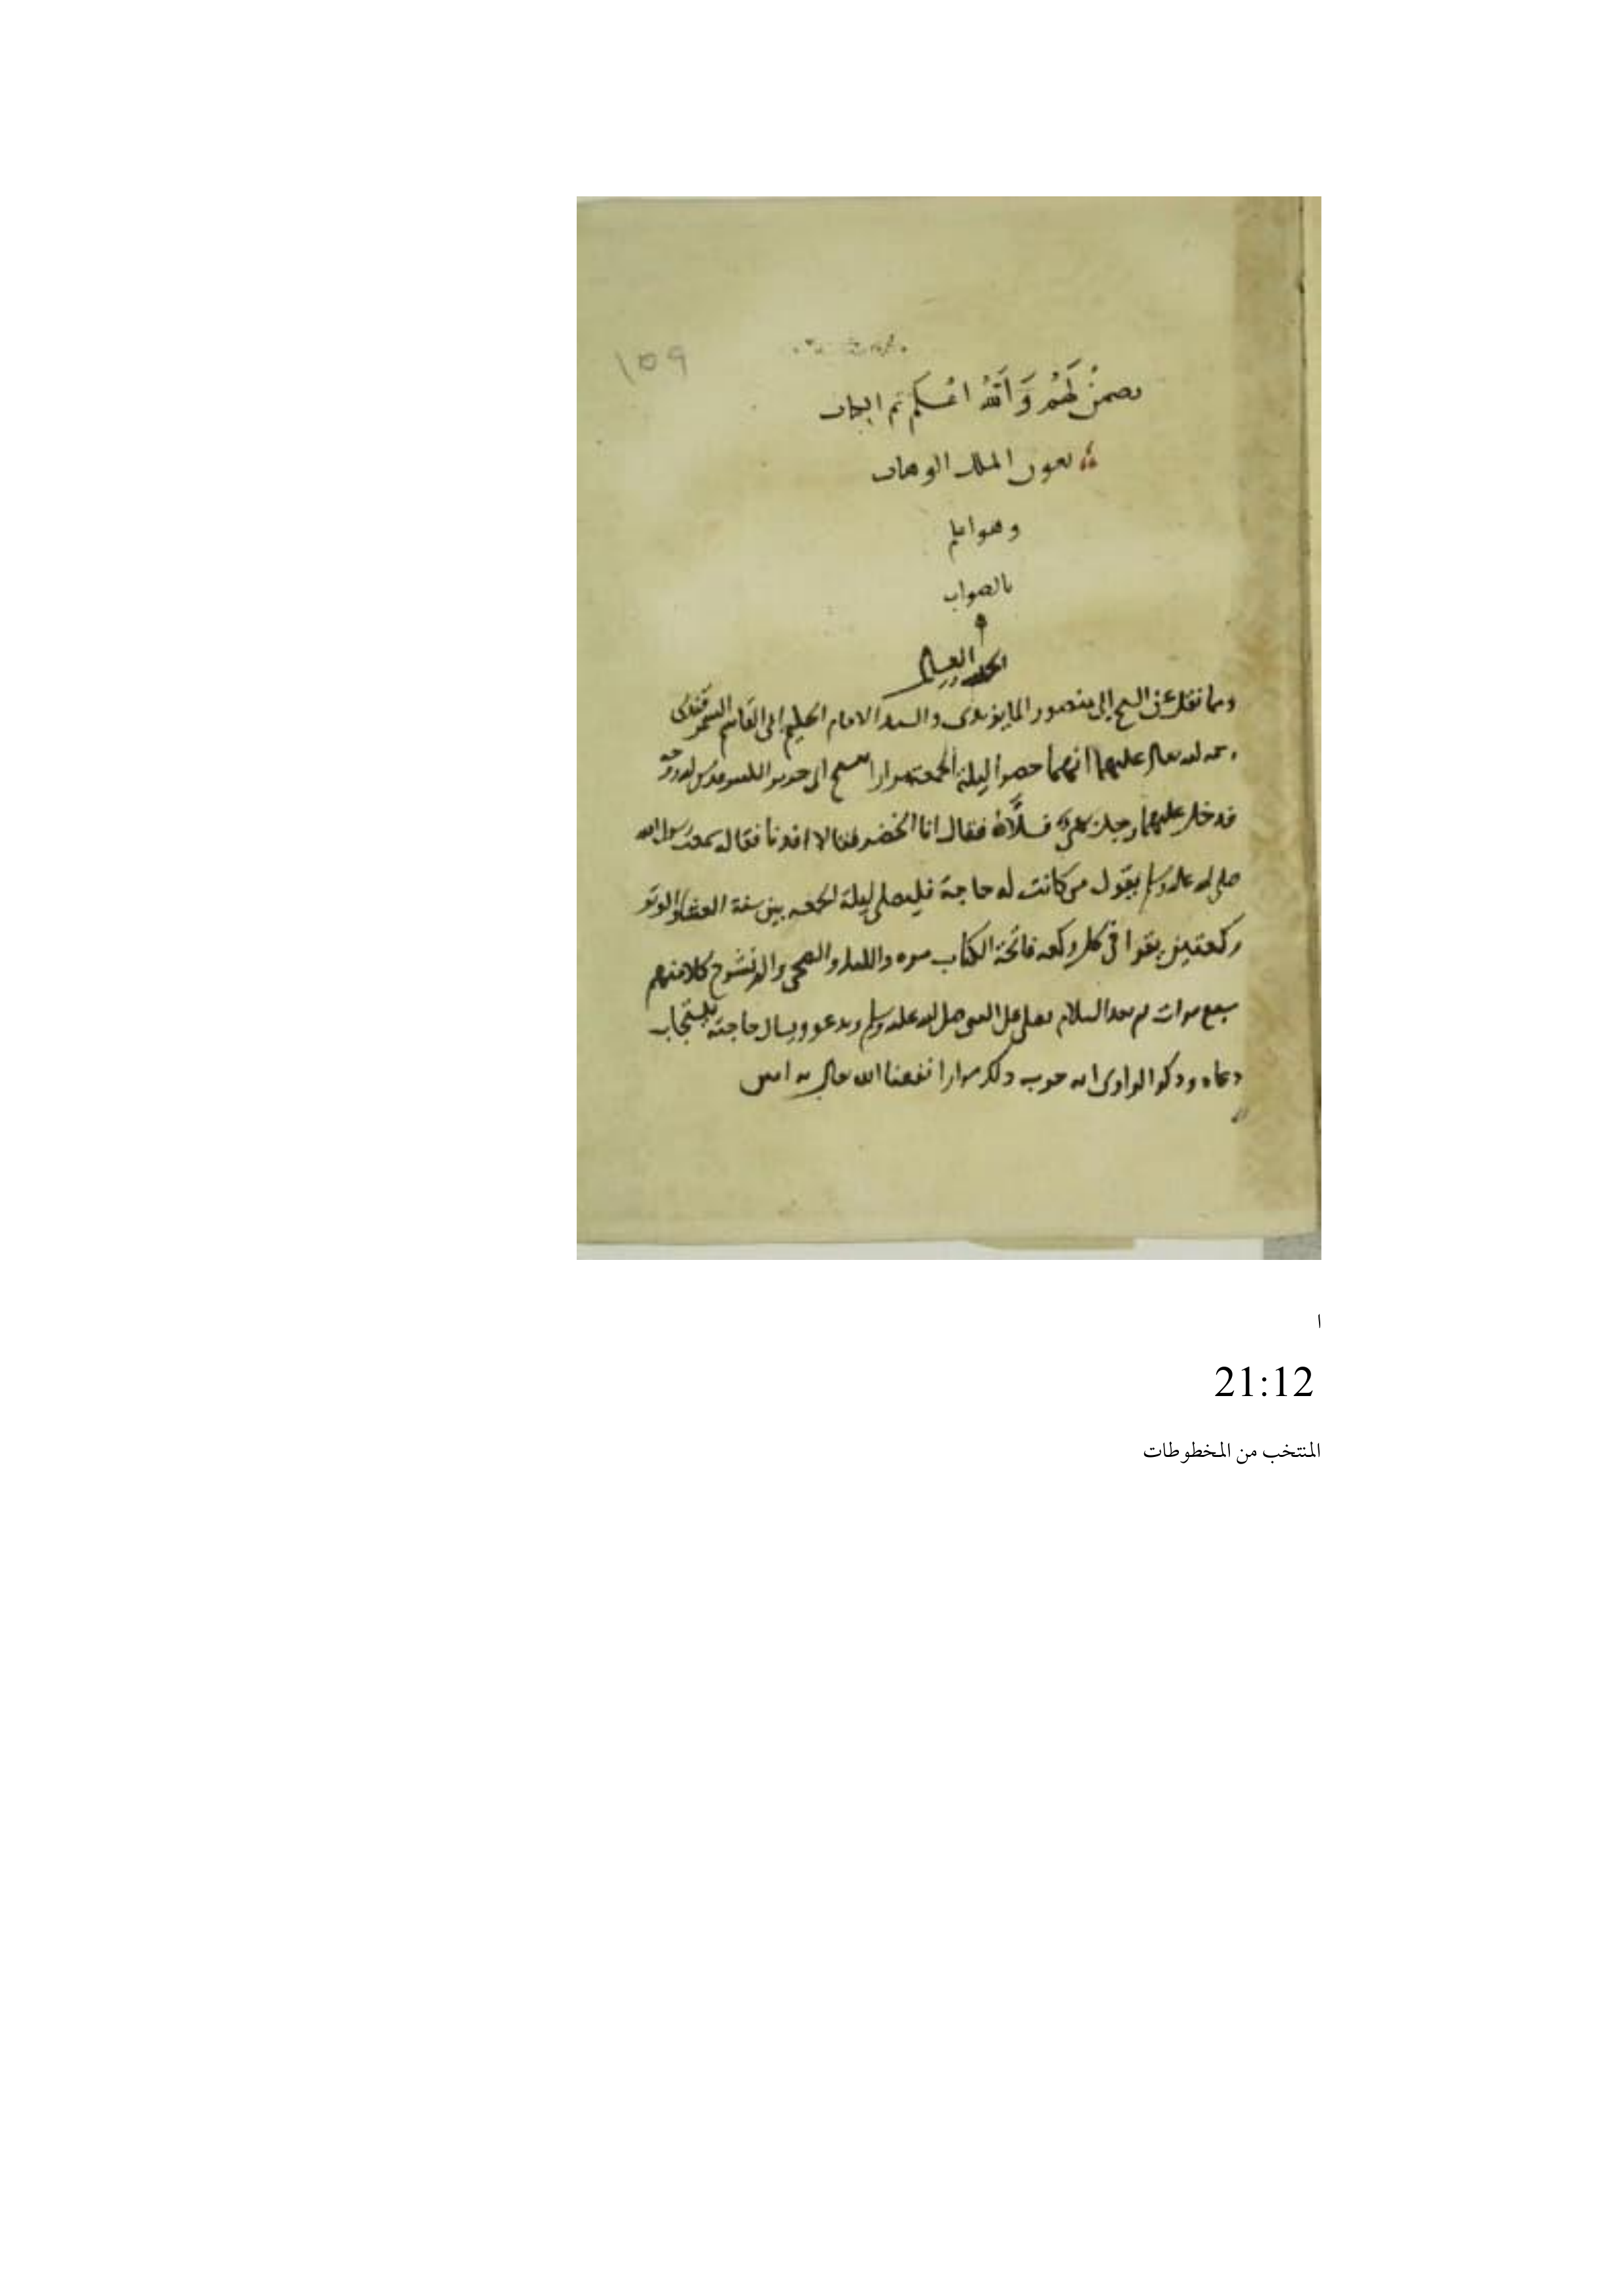 ١٥٩
لهم والله اعلم تم الكتاب
بعون الملك الوهاب
وهو اعلم
بالصواب
ومما نقل عن الشيخ ابى منصور الماتريدى والسيد الامام الحكيم ابى القاسم السمرقندى
رحمه الله تعالى عليهما انهما حضرا ليلة الجمعة مزار الشيخ ابى
فدخل عليهما رجل فقال انا الخضر فقالا افدنا فقال سمعت رسول الله
صلى الله عليه وسلم يقول من كانت له حاجة فليصلى ليلة الجمعه بين سنة العشاء والوتر
ركعتين يقرا فى كل ركعه فاتحة الكتاب مره والليل والضحى والم نشرح كلا منهم
سبع مرات ثم بعد السلام يصلى على النبى صلى الله عليه وسلم ويدعو ويسال حاجته
دعاه وذكر الراوى انه جرب ذلك مرارا نفعنا الله تعالى به امين
ا
21:12
المنتخب من المخطوطات